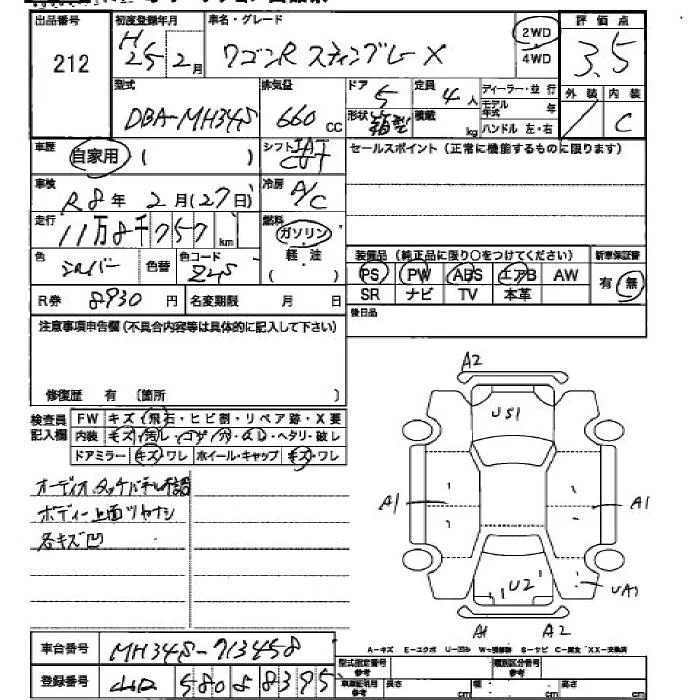 出品番号 初度登録年月 車名・グレード 評価点
212 H25年2月 ワゴンR スティングレー X 2WD 4WD 3.5
型式 排気量 ドア 定員 ディーラー・並行 外装 内装
DBA-MH34S 660cc 5 4人 モデル年式 年 C
形状 箱型 積載 kg ハンドル 左・右
車歴 自家用 ( ) シフト IAT CVT セールスポイント (正常に機能するものに限ります)
車検 R8年2月(27日) 冷房 A/C
走行 11万8千757km 燃料 ガソリン 軽油 ( )
色 シルバー 色替 色コード Z2S 装備品 (純正品に限り○をつけてください) 新車保証書
PS PW ABS エアB AW 有・無
R券 8930円 名変期限 月 日 SR ナビ TV 本革
注意事項申告欄(不具合内容等は具体的に記入して下さい) 後日品
修復歴 有 [箇所 ]
検査員記入欄 FW キズ・飛石・ヒビ割・リペア跡・X要
内装 キズ・汚レ・コゲ・穴・スレ・ヘタリ・破レ
ドアミラー キズ・ワレ ホイール・キャップ キズ・ワレ
オーディオ タッチパネル不調
ボディー上面ツヤナシ
各キズ凹
A2
US1
A1 A1
U2 UA1
A1 A2
車台番号 MH34S-713458
A-キズ E-エクボ U-凹み W-補修跡 S-サビ C-腐食 XX-交換済
登録番号 580 8395
型式指定番号 参考 類別区分番号 参考
車検証明 参考 長さ cm 幅 cm 高さ cm